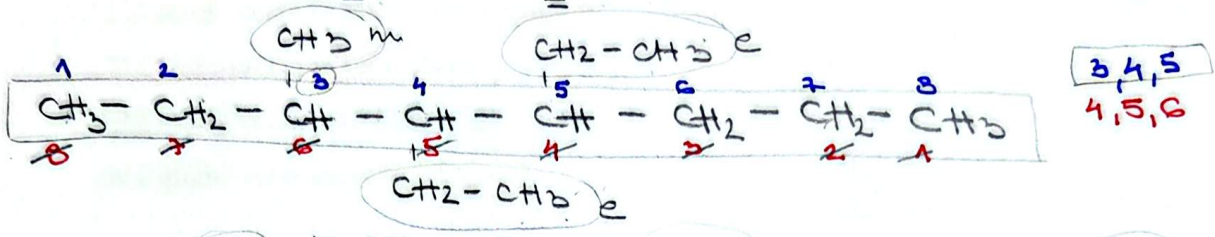 CH3 m CH2 – CH3 e
1 2 3 4 5 6 7 8 3,4,5
CH3 – CH2 – CH – CH – CH – CH2 – CH2 – CH3 4,5,6
8 7 6 5 4 3 2 1
CH2 – CH3 e